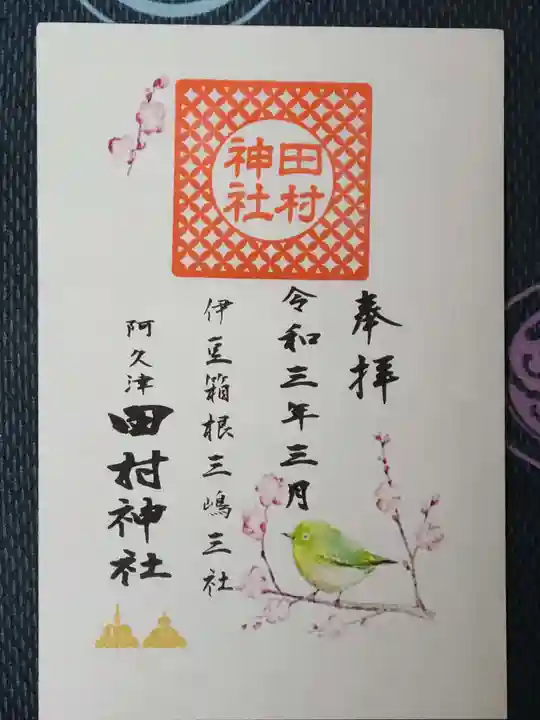 田村
神社
奉拝
令和三年三月
伊豆箱根三嶋三社
阿久津
田村神社